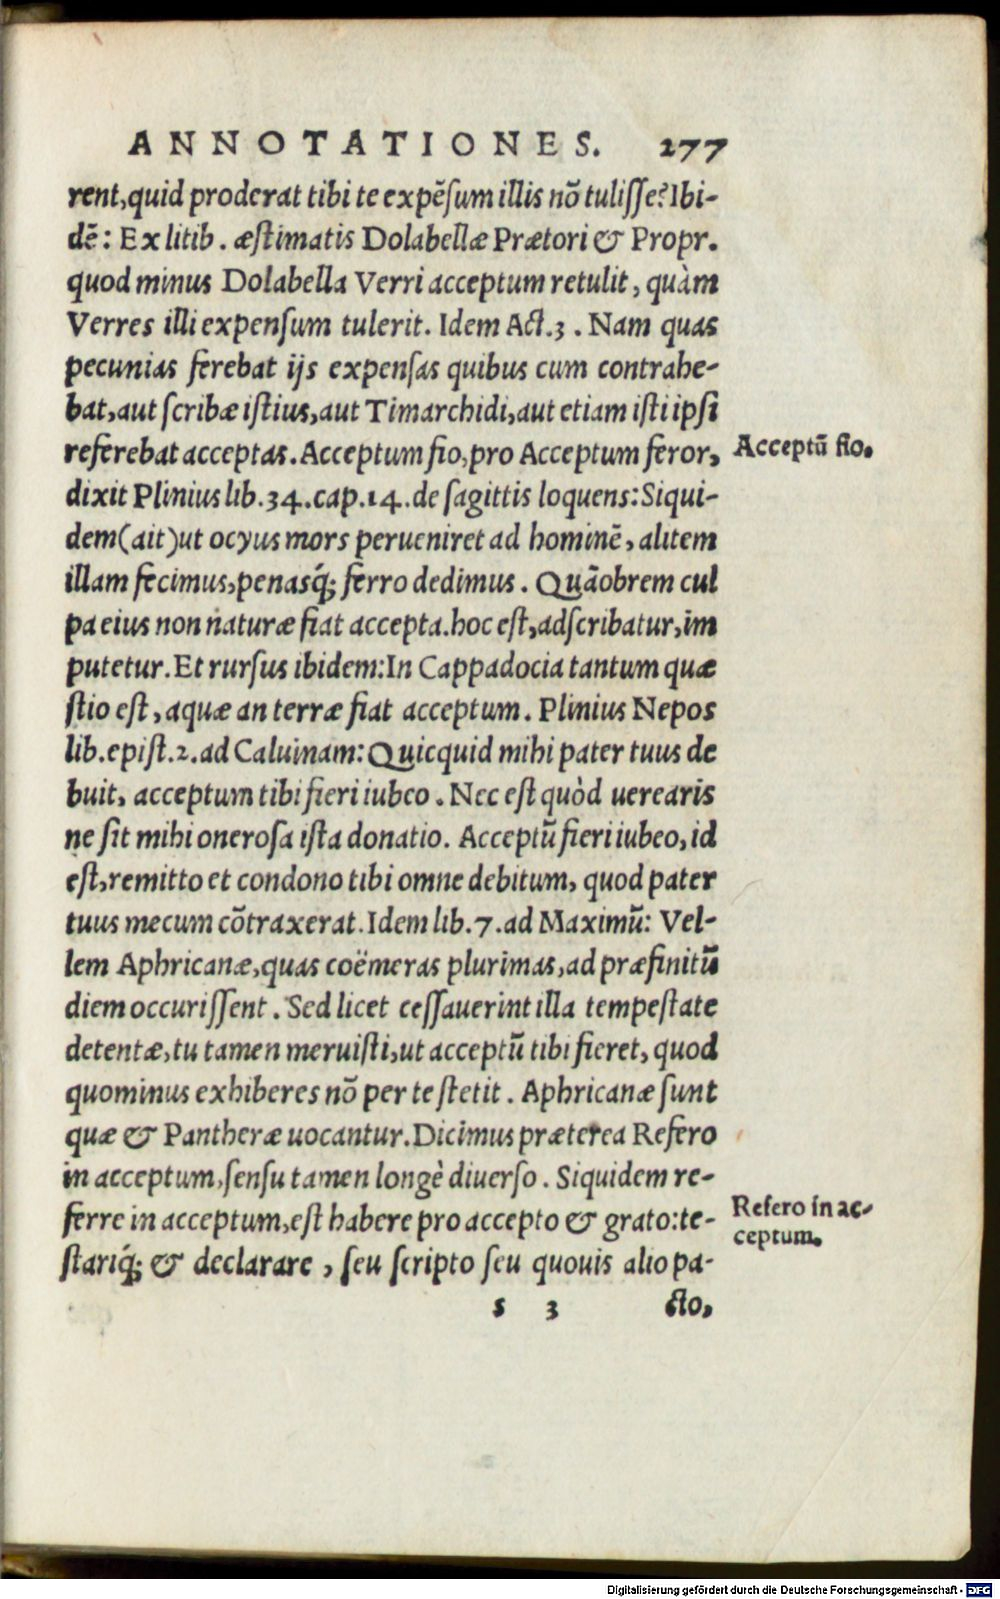 ANNOTATIONES. 277
rent,quid proderat tibi te expẽsum illis nõ tulisse? Ibi-
dẽ: Ex litib. æstimatis Dolabellæ Prætori & Propr.
quod minus Dolabella Verri acceptum retulit, quàm
Verres illi expensum tulerit. Idem Act.3. Nam quas
pecunias ferebat ijs expensas quibus cum contrahe-
bat,aut scribæ istius,aut Timarchidi,aut etiam isti ipsi
referebat acceptas. Acceptum fio,pro Acceptum feror,
Acceptũ fio.
dixit Plinius lib.34.cap.14.de sagittis loquens: Siqui-
dem(ait)ut ocyus mors perueniret ad hominẽ, alitem
illam fecimus,penasq́; ferro dedimus. Quãobrem cul
pa eius non naturæ fiat accepta.hoc est,adscribatur,im
putetur. Et rursus ibidem: In Cappadocia tantum quæ
stio est, aquæ an terræ fiat acceptum. Plinius Nepos
lib.epist.2.ad Caluinam: Quicquid mihi pater tuus de
buit, acceptum tibi fieri iubeo. Nec est quòd uerearis
ne sit mihi onerosa ista donatio. Acceptũ fieri iubeo, id
est,remitto et condono tibi omne debitum, quod pater
tuus mecum cõtraxerat. Idem lib.7.ad Maximũ: Vel-
lem Aphricanæ,quas coëmeras plurimas,ad præfinitũ
diem occurissent. Sed licet cessauerint illa tempestate
detentæ,tu tamen meruisti,ut acceptũ tibi fieret, quod
quominus exhiberes nõ per te stetit. Aphricanæ sunt
quæ & Pantheræ uocantur. Dicimus præterea Refero
in acceptum,sensu tamen longè diuerso. Siquidem re-
ferre in acceptum,est habere pro accepto & grato:te-
Refero in ac-
ceptum.
stariq́; & declarare, seu scripto seu quouis alio pa-
s 3 cto,
Digitalisierung gefördert durch die Deutsche Forschungsgemeinschaft - DFG